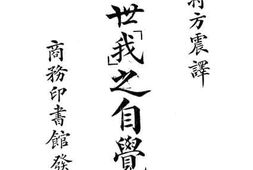 方震譯
世「我」之自覺
商務印書館發